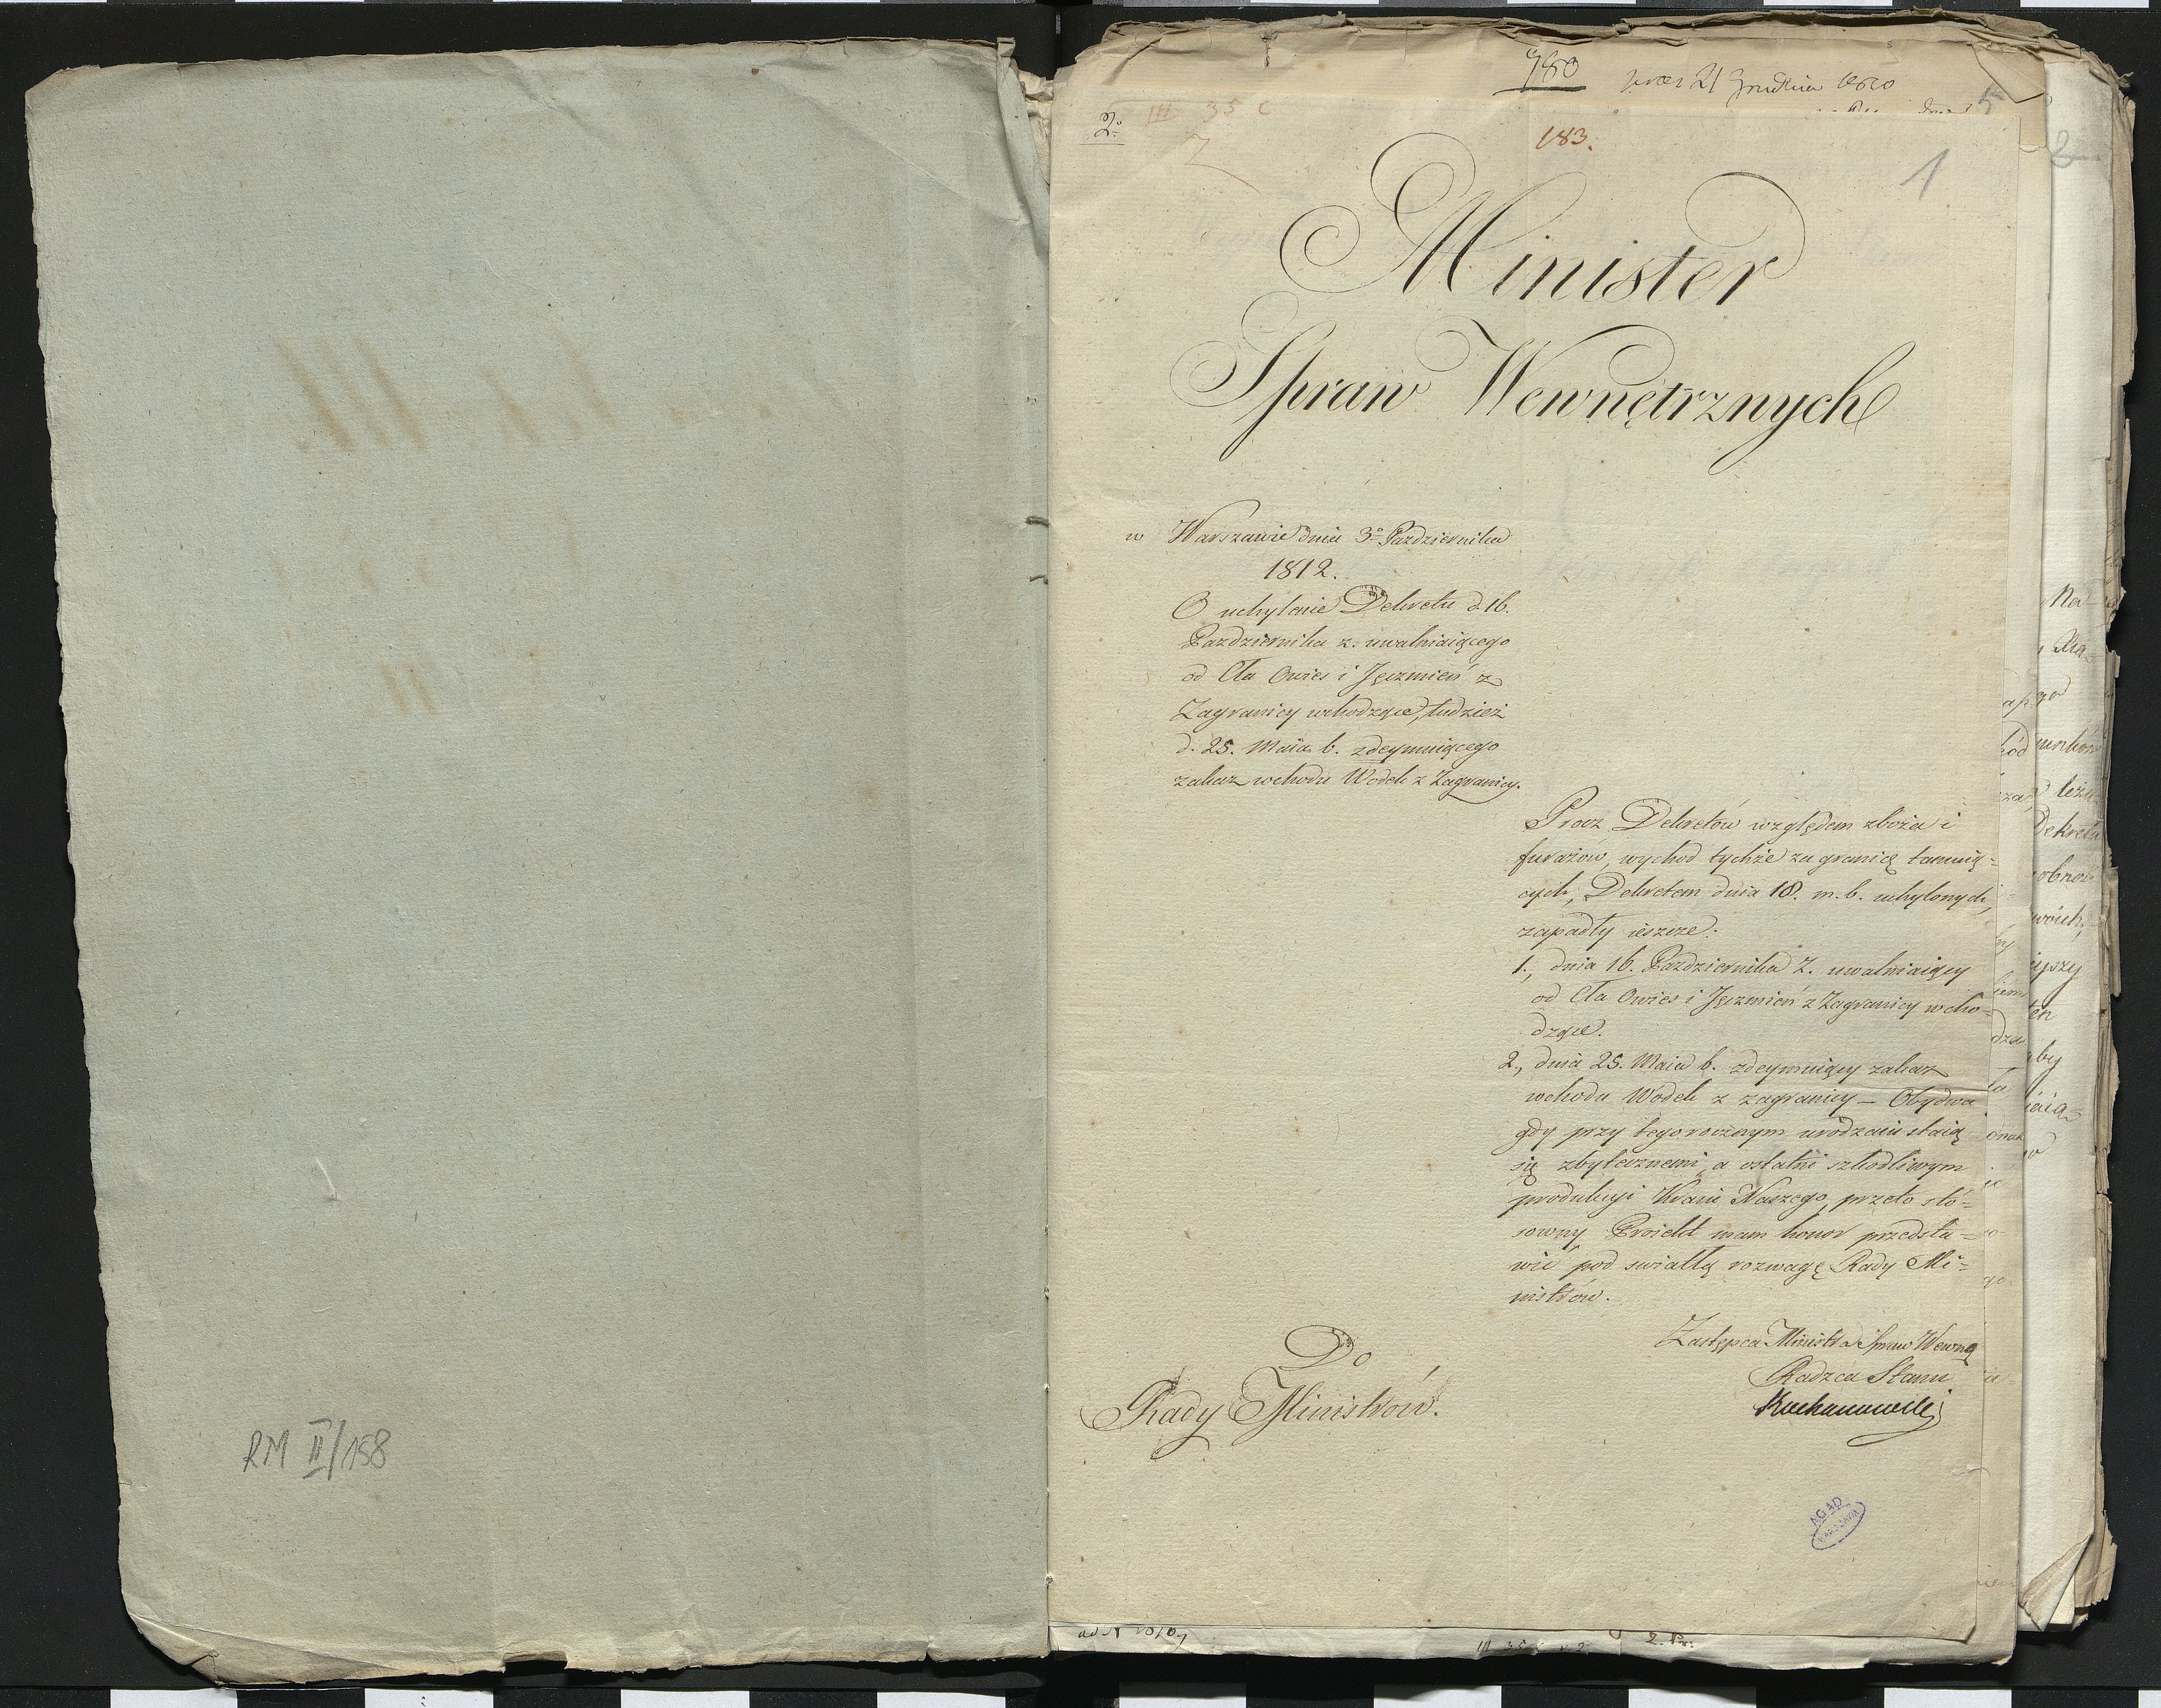 RM II/158
980
21 Grudnia 1810
5
2
III 35 c
2º
183.
1
Minister
Spraw Wewnętrznych
w Warszawie dnia 3º Pazdziernika
1812.
O uchylenie Dekretu d. 16.
Pazdziernika z. uwalniaiącego
od Cła Owies i Jęczmień z
Zagranicy wchodzące, tudzież
d. 25. Maia b. zdeymuiącego
zakaz wchodu Wodek z Zagranicy.
Procz Dekretów względem zboża i
furażow, wychod tychże za granicę tamuią=
cych, Dekretem dnia 18. m. b. uchylonych,
zapadły ieszcze:
1., dnia 16. Pazdziernika z. uwalniaiący
od Cła Owies i Jęczmień z Zagranicy wcho=
dzące.
2., dnia 25. Maia b. zdeymuiący zakaz
wchodu Wódek z zagranicy – Obydwa
gdy przy tegorocznym urodzaiu staią
się zbytecznemi, a ostatni szkodliwym
produkcyi Kraiu Naszego, przeto sto=
sowny Proiekt mam honor przedsta=
wić pod swiatłą rozwagę Rady Mi=
nistrów.
Zastępca Ministra Spraw Wewnę
Radzca Stanu
Kochanowski
Do
Rady Ministrów.
AGAD
WARSZAWA